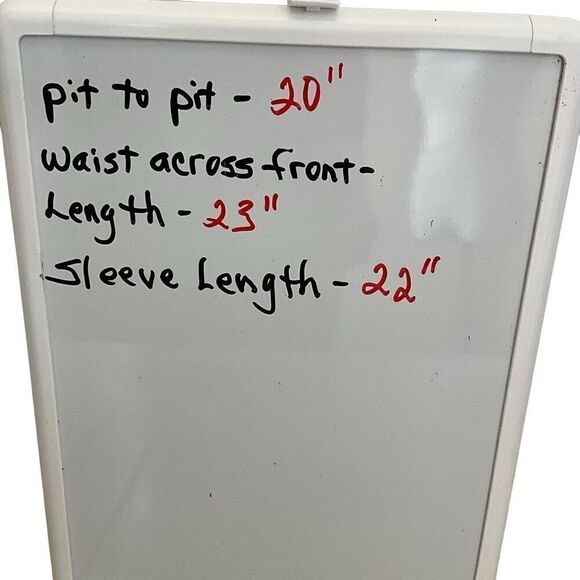 pit to pit - 20"
waist across front-
Length - 23"
Sleeve Length - 22"